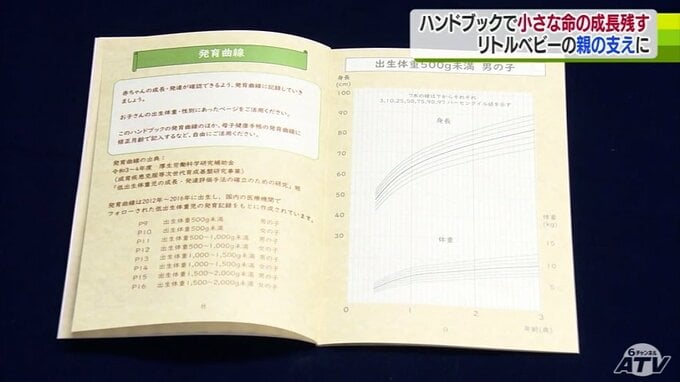 ハンドブックで小さな命の成長残す
リトルベビーの親の支えに
発育曲線
赤ちゃんの成長・発達が確認できるよう、発育曲線に記録していき
ましょう。
お子さんの出生体重・性別にあったページをご活用ください。
このハンドブックの発育曲線のほか、母子健康手帳の発育曲線に
修正月齢で記入するなど、自由にご活用ください。
発育曲線の出典:
令和3〜4年度 厚生労働科学研究補助金
(成育疾患克服等次世代育成基盤研究事業)
「低出生体重児の成長・発達評価手法の確立のための研究」班
発育曲線は2012年〜2016年に出生し、国内の医療機関で
フォローされた低出生体重児の発育記録をもとに作成されています。
P9 出生体重500g未満 男の子
P10 出生体重500g未満 女の子
P11 出生体重500〜1,000g未満 男の子
P12 出生体重500〜1,000g未満 女の子
P13 出生体重1,000〜1,500g未満 男の子
P14 出生体重1,000〜1,500g未満 女の子
P15 出生体重1,500〜2,000g未満 男の子
P16 出生体重1,500〜2,000g未満 女の子
出生体重500g未満 男の子
身長
(cm)
7本の線は下からそれぞれ
3,10,25,50,75,90,97 パーセンタイル値を示す
100
90
80
70
60
50
40
30
身長
体重
体重
(kg)
15
10
5
0
1
2
3
年齢(歳)
6チャンネル
ATV